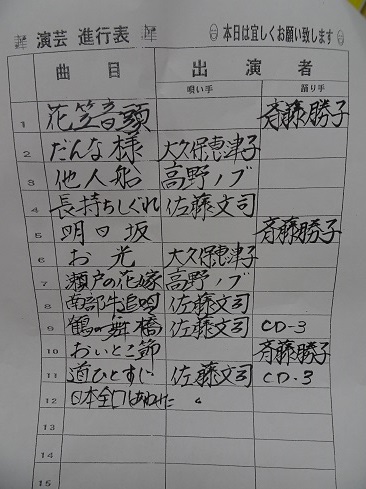 演芸 進行表 本日は宜しくお願い致します
曲目 出演者
唄い手 踊り手
1 花笠音頭 斉藤勝子
2 だんな様 大久保恵津子
3 他人船 高野ノブ
4 長持ちしぐれ 佐藤文司
5 明日坂 斉藤勝子
6 お光 大久保恵津子
7 瀬戸の花嫁 高野ノブ
8 南部牛追唄 佐藤文司
9 鶴の舞橋 佐藤文司 CD-3
10 おいとこ節 斉藤勝子
11 道ひとすじ 佐藤文司 CD-3
12 日本全口
13
14
15